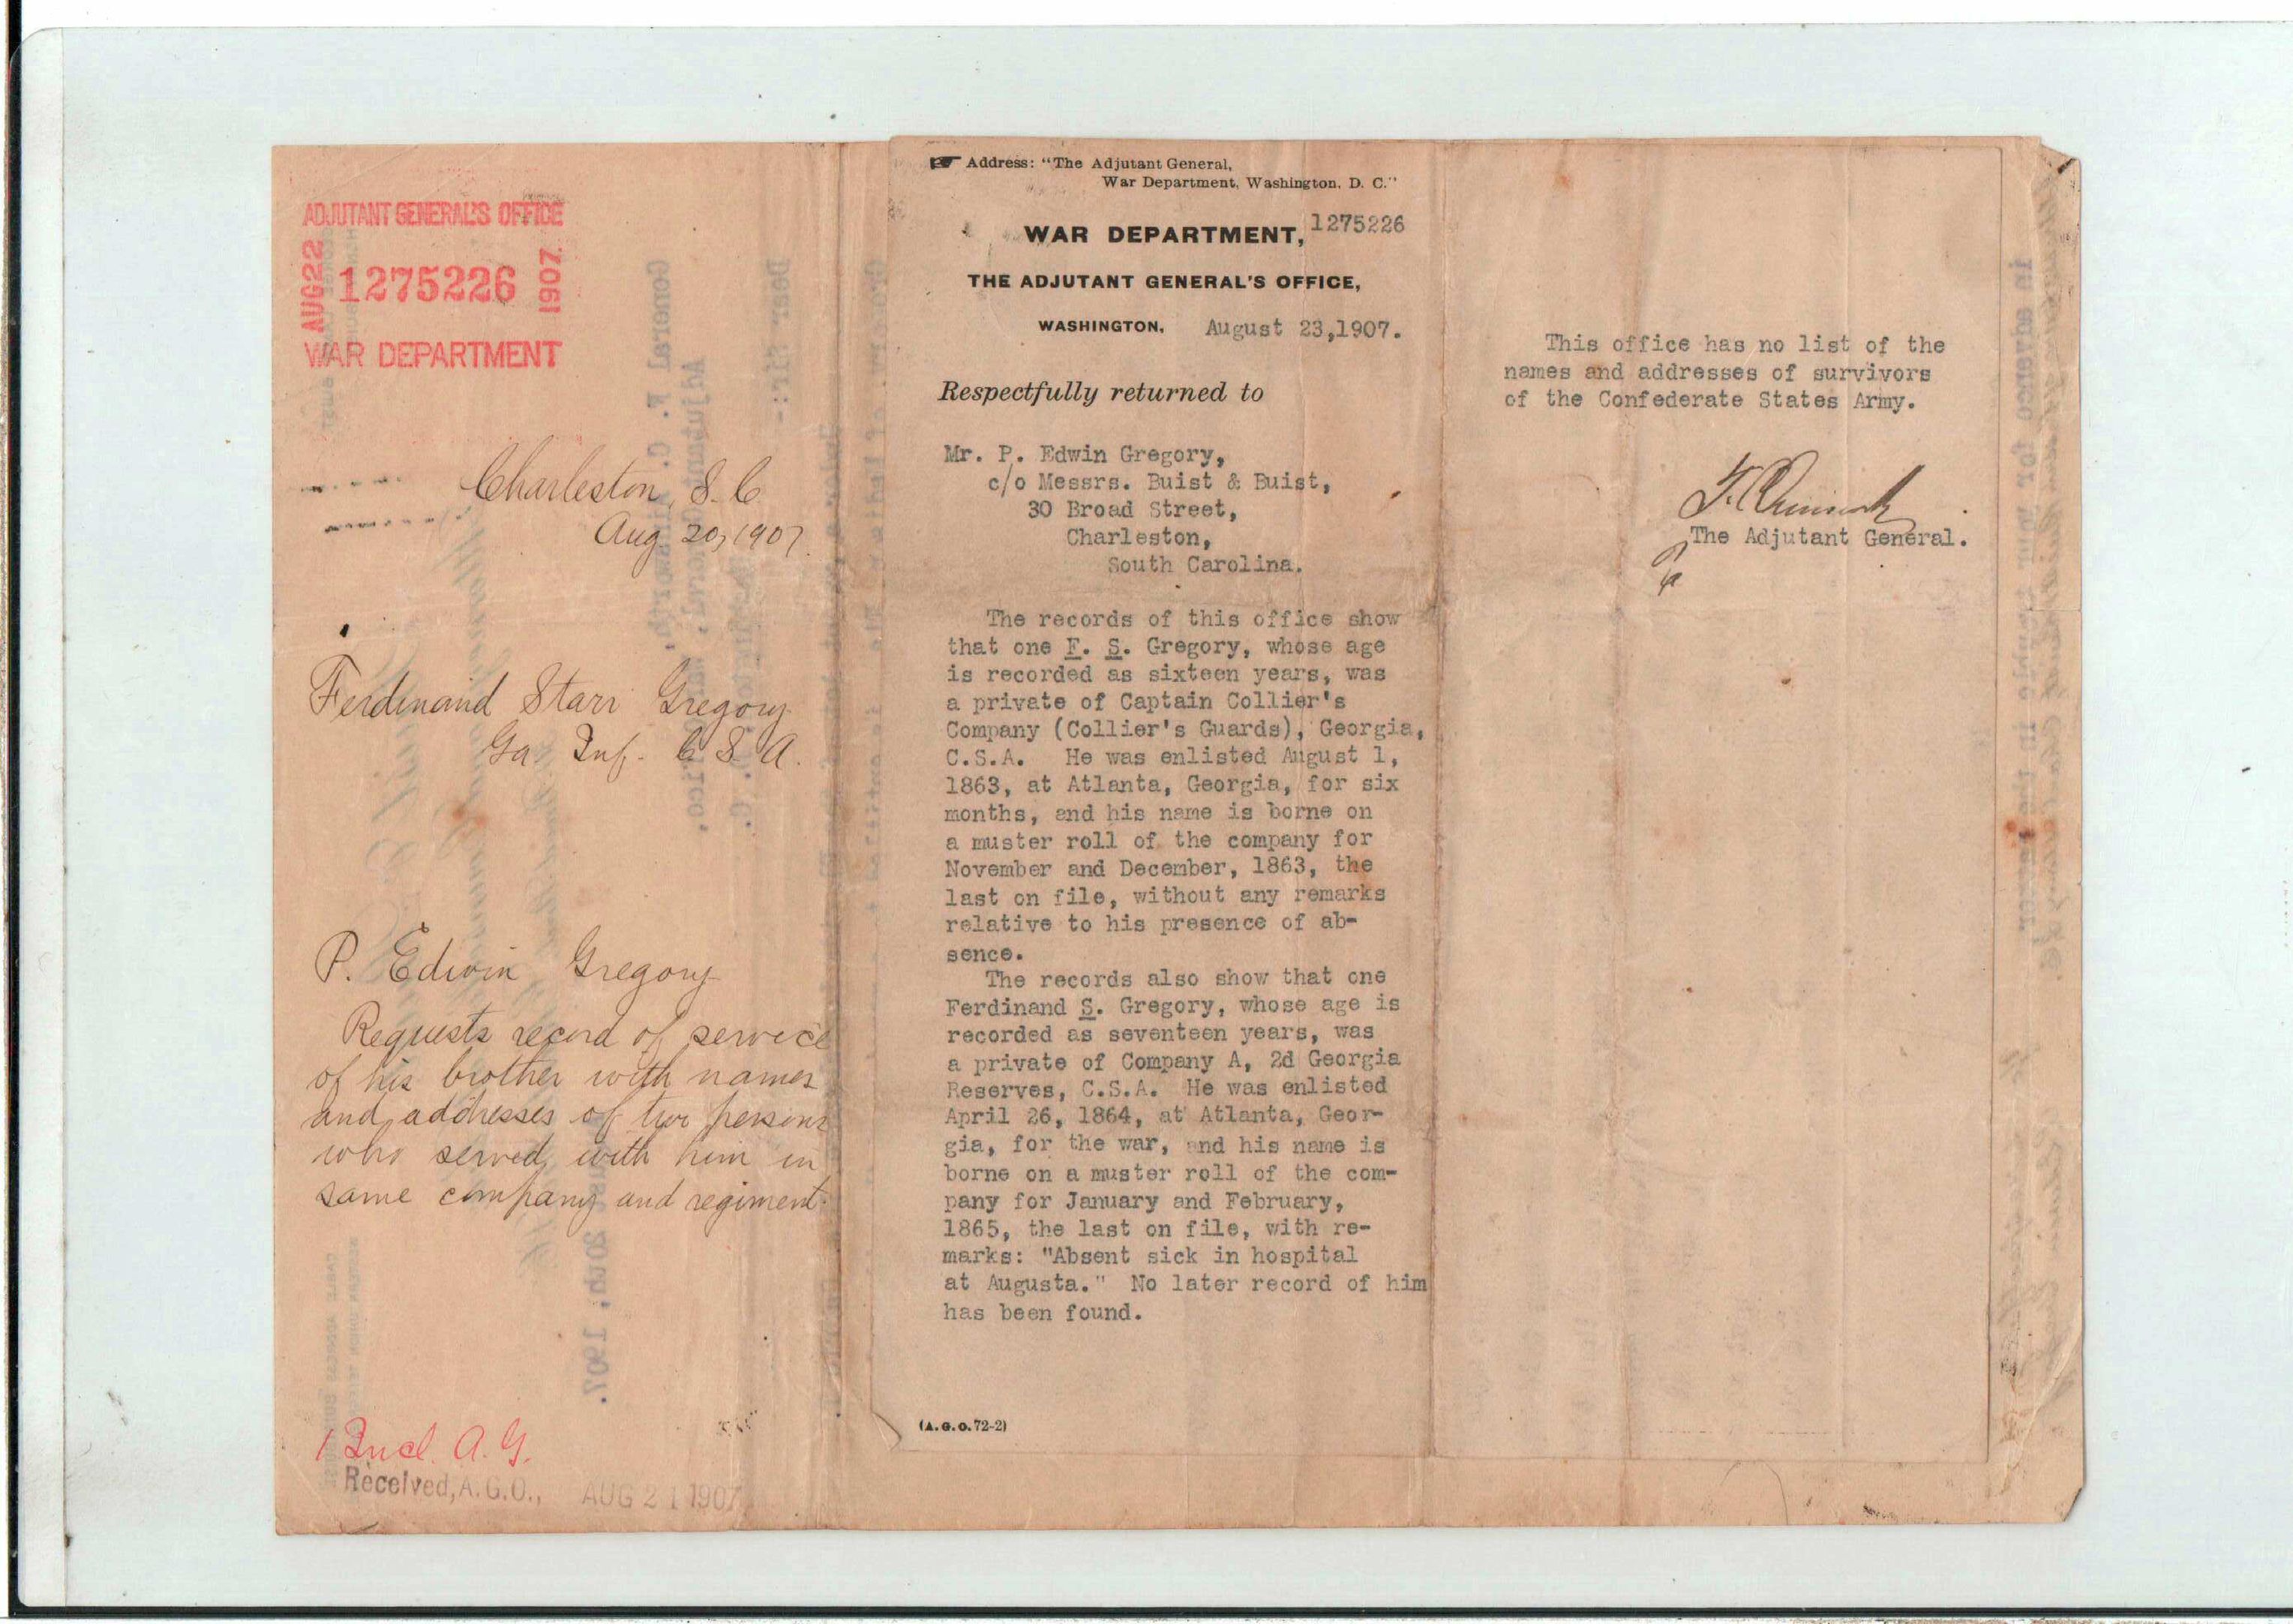 ADJUTANT GENERAL'S OFFICE
AUG 22 1275226 1907.
WAR DEPARTMENT
Charleston, S. C.
Aug. 20, 1907.
Ferdinand Starr Gregory
Ga. Inf. C. S. A.
P. Edwin Gregory
Requests record of service
of his brother with names
and addresses of two persons
who served with him in
same company and regiment.
1 Incl. A. G.
Received, A.G.O., AUG 21 1907
Address: "The Adjutant General,
War Department, Washington, D. C."
WAR DEPARTMENT, 1275226
THE ADJUTANT GENERAL'S OFFICE,
WASHINGTON, August 23,1907.
Respectfully returned to
Mr. P. Edwin Gregory,
c/o Messrs. Buist & Buist,
30 Broad Street,
Charleston,
South Carolina.
The records of this office show
that one F. S. Gregory, whose age
is recorded as sixteen years, was
a private of Captain Collier's
Company (Collier's Guards), Georgia,
C.S.A. He was enlisted August 1,
1863, at Atlanta, Georgia, for six
months, and his name is borne on
a muster roll of the company for
November and December, 1863, the
last on file, without any remarks
relative to his presence of ab-
sence.
The records also show that one
Ferdinand S. Gregory, whose age is
recorded as seventeen years, was
a private of Company A, 2d Georgia
Reserves, C.S.A. He was enlisted
April 26, 1864, at Atlanta, Geor-
gia, for the war, and his name is
borne on a muster roll of the com-
pany for January and February,
1865, the last on file, with re-
marks: "Absent sick in hospital
at Augusta." No later record of him
has been found.
(A.G.O. 72-2)
This office has no list of the
names and addresses of survivors
of the Confederate States Army.
The Adjutant General.